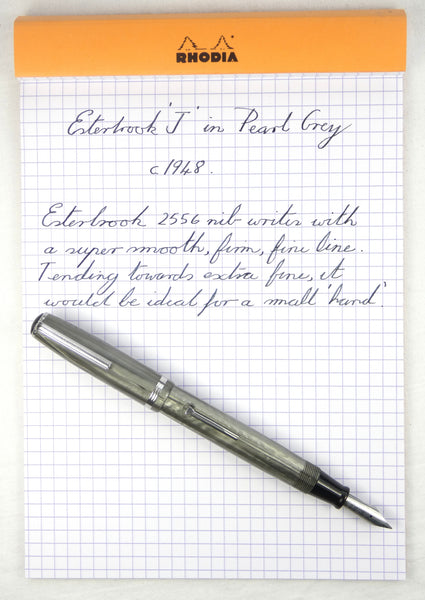 RHODIA
Esterbrook 'J' in Pearl Grey
c1948.
Esterbrook 2556 nib writes with
a super smooth, firm, fine line.
Tending towards extra fine, it
would be ideal for a small 'hand'.